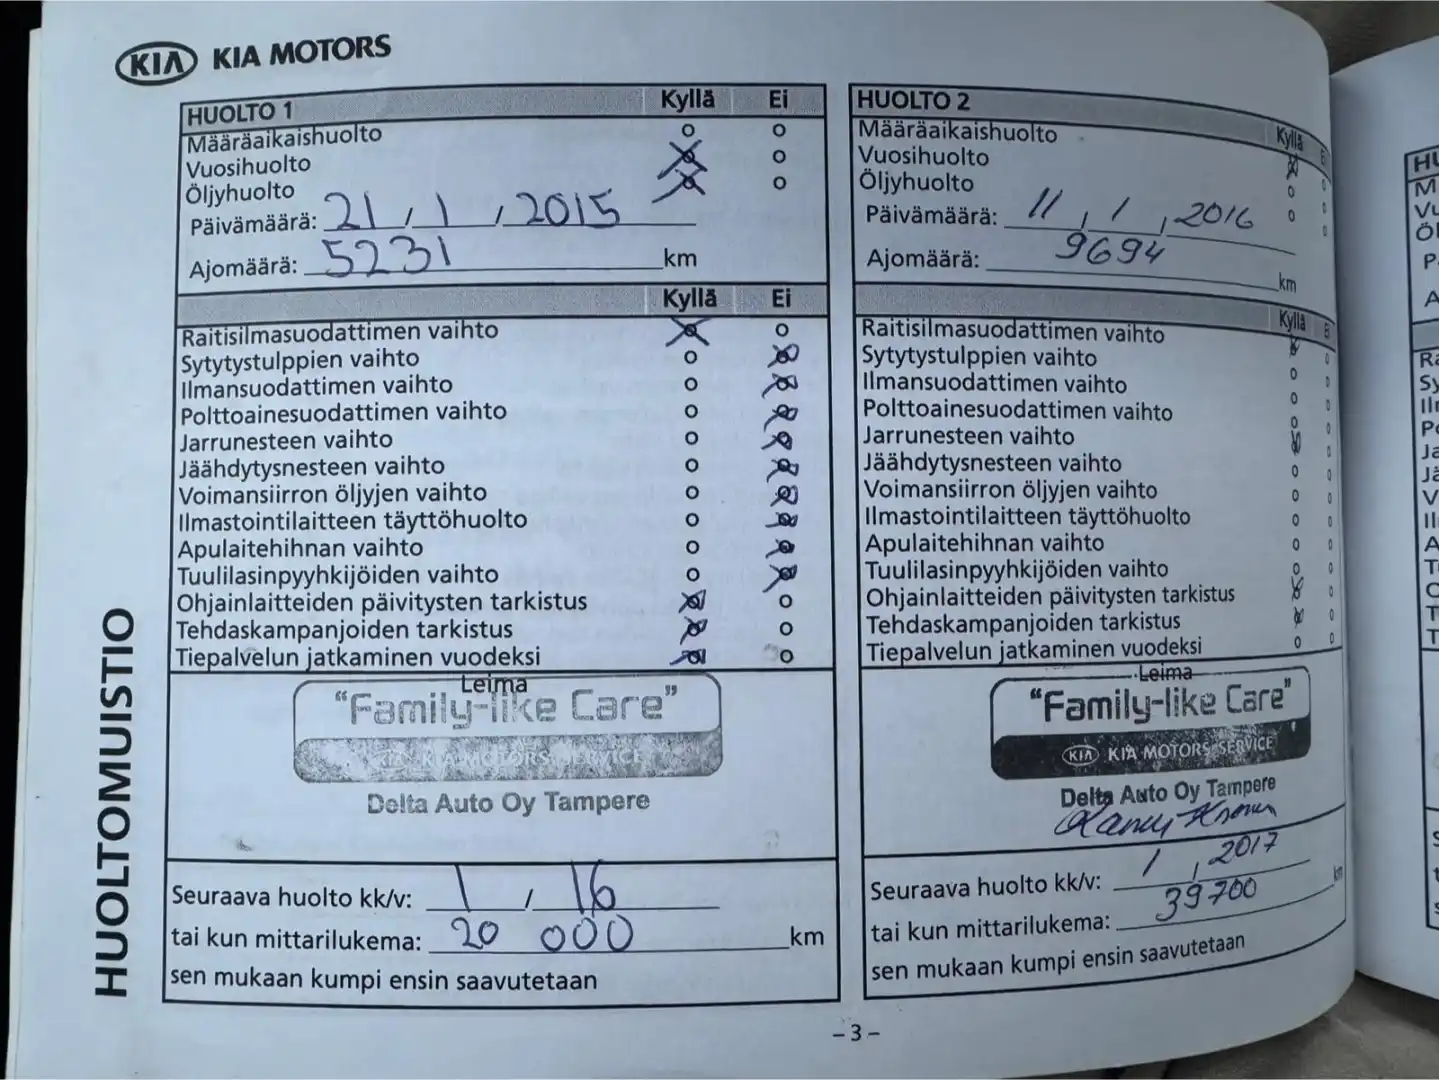 KIA KIA MOTORS
HUOLTOMUISTIO
HUOLTO 1 Kyllä Ei
Määräaikaishuolto
Vuosihuolto
Öljyhuolto
Päivämäärä: 21 / 1 / 2015
Ajomäärä: 5231 km
Kyllä Ei
Raitisilmasuodattimen vaihto
Sytytystulppien vaihto
Ilmansuodattimen vaihto
Polttoainesuodattimen vaihto
Jarrunesteen vaihto
Jäähdytysnesteen vaihto
Voimansiirron öljyjen vaihto
Ilmastointilaitteen täyttöhuolto
Apulaitehihnan vaihto
Tuulilasinpyyhkijöiden vaihto
Ohjainlaitteiden päivitysten tarkistus
Tehdaskampanjoiden tarkistus
Tiepalvelun jatkaminen vuodeksi
Leima
"Family-like Care"
KIA KIA MOTORS SERVICE
Delta Auto Oy Tampere
Seuraava huolto kk/v: 1 / 16
tai kun mittarilukema: 20 000 km
sen mukaan kumpi ensin saavutetaan
HUOLTO 2 Kyllä
Määräaikaishuolto
Vuosihuolto
Öljyhuolto
Päivämäärä: 11 / 1 / 2016
Ajomäärä: 9694 km
Kyllä
Raitisilmasuodattimen vaihto
Sytytystulppien vaihto
Ilmansuodattimen vaihto
Polttoainesuodattimen vaihto
Jarrunesteen vaihto
Jäähdytysnesteen vaihto
Voimansiirron öljyjen vaihto
Ilmastointilaitteen täyttöhuolto
Apulaitehihnan vaihto
Tuulilasinpyyhkijöiden vaihto
Ohjainlaitteiden päivitysten tarkistus
Tehdaskampanjoiden tarkistus
Tiepalvelun jatkaminen vuodeksi
Leima
"Family-like Care"
KIA KIA MOTORS SERVICE
Delta Auto Oy Tampere
Seuraava huolto kk/v: 1 / 2017
tai kun mittarilukema: 39700 km
sen mukaan kumpi ensin saavutetaan
– 3 –